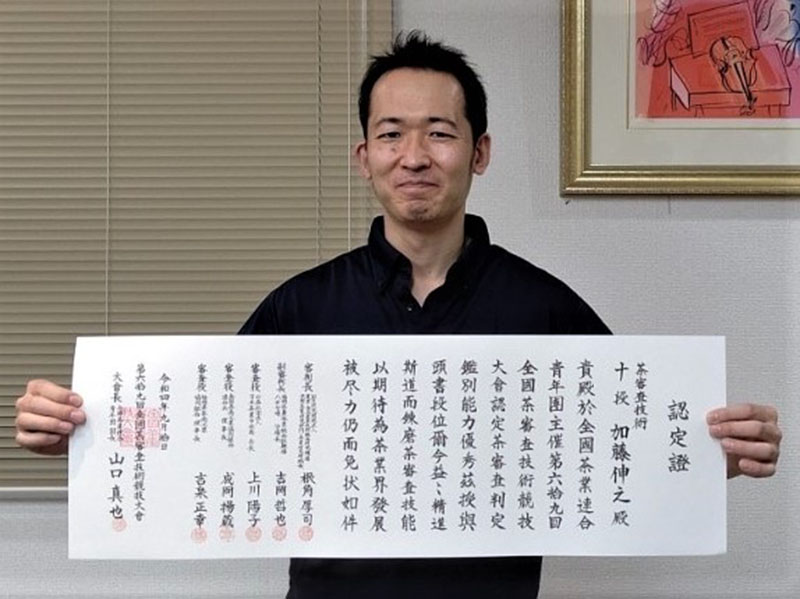 認定證
茶審査技術
十段 加藤伸之殿
貴殿於全國茶業連合
青年團主催第六拾九回
全國茶審査技術競技
大會認定茶審査判定
鑑別能力優秀茲授與
頭書段位爾今益々精進
斯道而錬磨茶審査技能
以期待為茶業界發展
被尽力仍而免状如件
審判長
根角厚司
副審判長
吉岡哲也
審査役
上川陽子
審査役
成岡揚蔵
審査役
吉泉正章
令和四年
大會長
山口真也